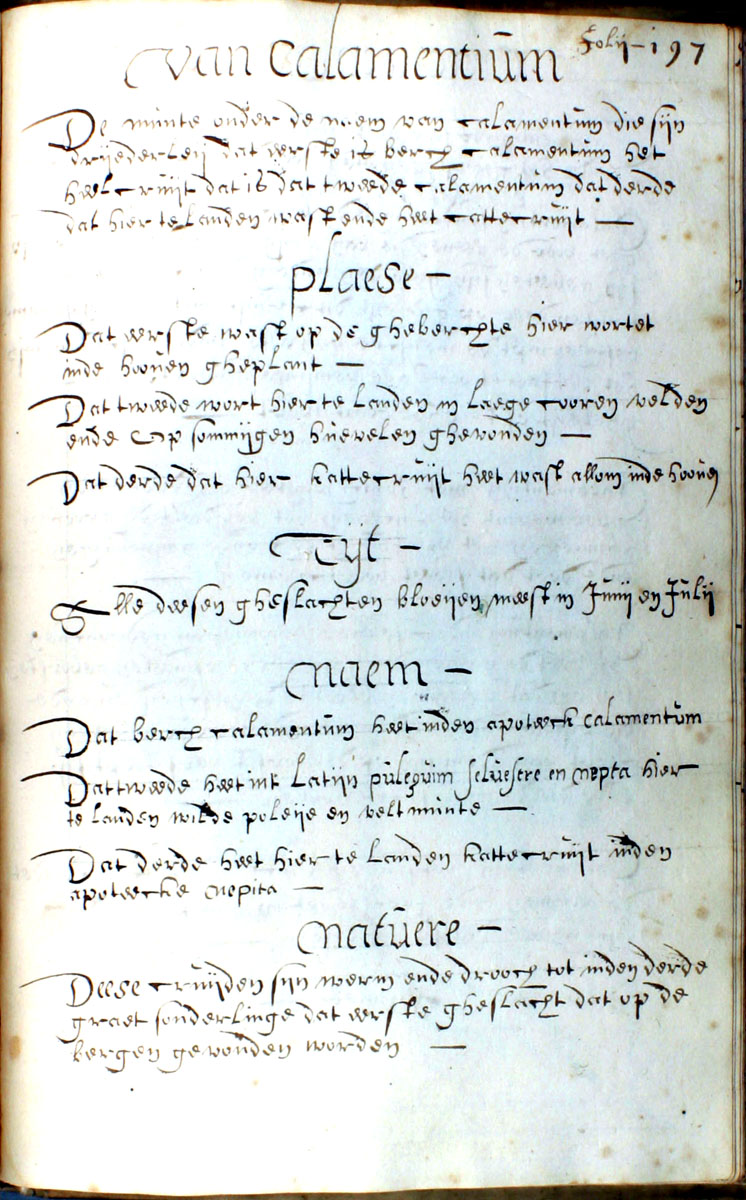 Folij - 197
van Calamentium
De munte onder de naem van Calamentum die sijn
drijederleij dat eerste is berch calamentum het
heel cruijt dat is dat tweede calamentum dat derde
dat hier te landen wast ende heet cattecruijt —
plaese —
Dat eerste wast op de gheberchte hier wortet
inde hooven gheplant —
Dat tweede wort hier te landen in laege cooren velden
ende op sommijgen huevelen ghevonden —
Dat derde dat hier kattecruijt heet wast allom inde hooven
Tijt —
Alle deesen gheslachten bloeijen meest in Junij en Julij
naem —
Dat berch calamentum heet inden apoteeck calamentum
Dat tweede heet int Latijn puleguim seluesere en nepta hier
te landen wilde poleije en velt munte —
Dat derde heet hier te landen kattecruijt inden
apoteecke nepita —
natuere —
Deese cruijden sijn werm ende drooch tot inden derde
graet sonderlinge dat eerste gheslacht dat op de
bergen gevonden worden —